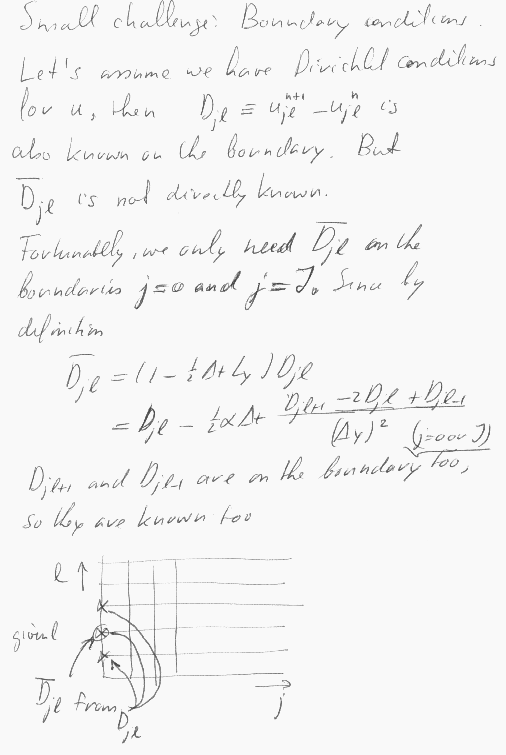 Small challenge: Boundary conditions.
Let's assume we have Dirichlet conditions
for u, then D_{jl} ≡ u_{jl}^{n+1} - u_{jl}^{n} is
also known on the boundary. But
\overline{D}_{jl} is not directly known.
Fortunately, we only need \overline{D}_{jl} on the
boundaries j=0 and j=J. Since by
definition
\overline{D}_{jl} = (1 - ½ Δt L_y) D_{jl}
= D_{jl} - ½ α Δt \frac{D_{jl+1} - 2D_{jl} + D_{jl-1}}{(Δy)^2} (j=0 or J)
D_{jl+1} and D_{jl-1} are on the boundary too,
so they are known too
l ↑
given l
\overline{D}_{jl} from D_{jl}
j